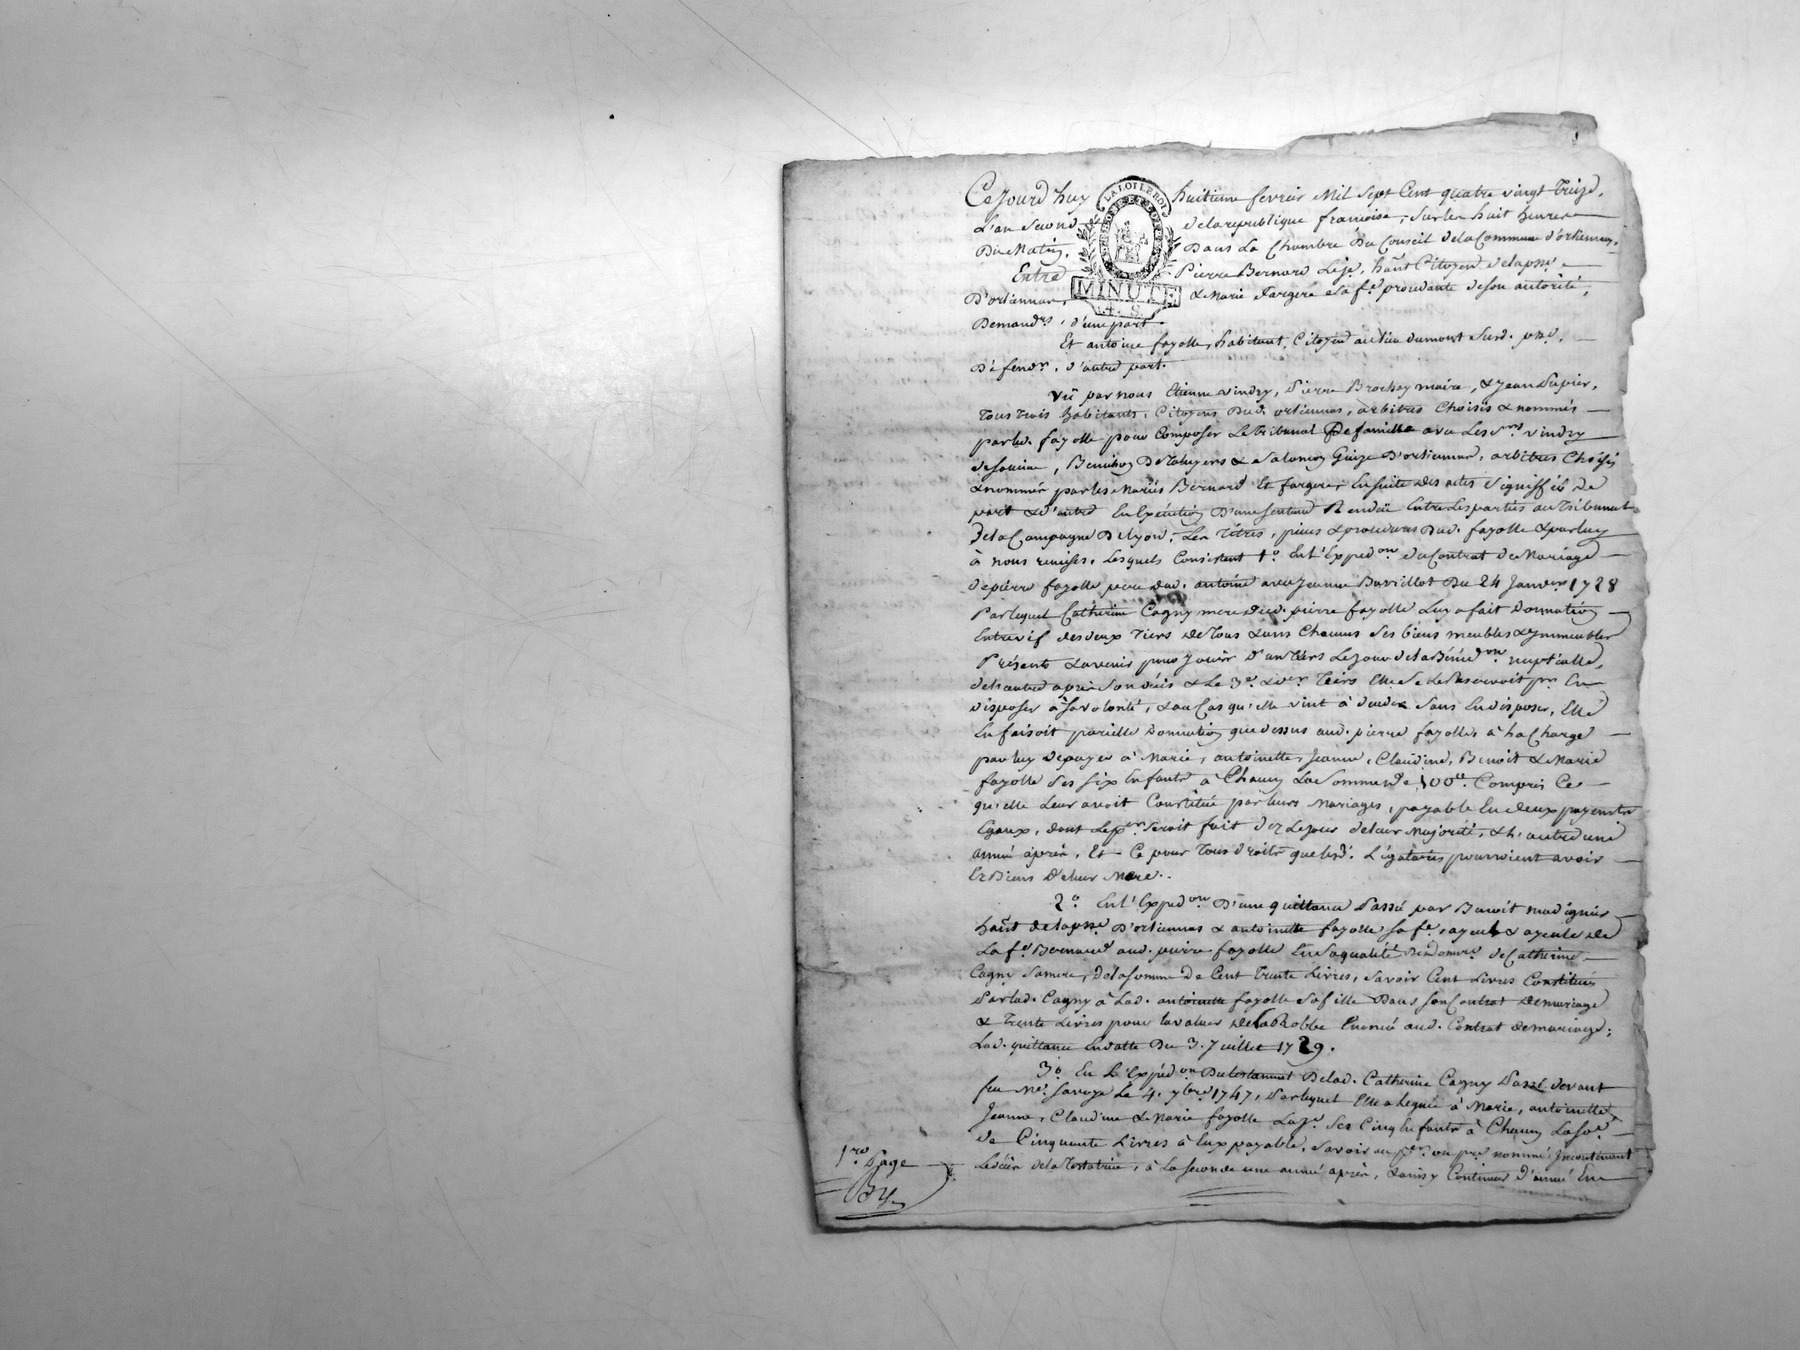 Cejourd'huy huitieme fevrier Mil Sept Cent quatre vingt Treize,
L'an Second de la republique francoise, sur les huit heures
Du Matin, Dans La Chambre Du Conseil de la Commune d'orlienas,
LA LOI LE ROI
MINUTE
Entre Pierre Bernard Leje, hañt Citoyen de la psse
D'orliennas, & Marie fargere sa fe. procedante de son autorité,
Demandrs, d'une part
Et antoine fayolle, habitant, Citoyen au lieu dumont Surd. psse,
Défendr, d'autre part.
Vû par nous Etienne vindry, Pierre Brochay maire, & Jean Dupier,
Tous Trois habitants, Citoyens Dud. orliennas, arbitres Choisis & nommés
par led. fayolle pour Composer Le Tribunal De famille avec Les Srs vindry
de , Benithoy De & Salomon Guize D'orliennas, arbitres Choisis
& nommés par les Mariés Bernard Et fargere, En suite des actes Signiffiés De
part & d'autre En Exécution D'une sentence Rendüe Entre Les parties au Tribunal
De la Campagne De Lyon, Les Titres, pieces & procedures Dud. fayolle & par luy
à nous remises, Lesquels Consistent 1°. En l'Expedon. du Contrat De Mariage
de pierre fayolle pere dud. antoine avec Jeanne Barillot Du 24 Janvier 1728
Par lequel Catherine Cagny mere dud. pierre fayolle Luy a fait Donnation
Entrevif des deux Tiers de Tous & uns Chacuns Ses biens meubles & Immeubles
Présents & avenir pour Jouir D'un tiers Le jour de la Bénédon. nuptialle,
de l'autre après Son décès & Le 3e. & der. Tiers Elle Se Le Reservoit pr. En
disposer à sa volonté, & au Cas qu'elle vint à décéder Sans En disposer, Elle
En faisoit pareille Donnation que dessus aud. pierre fayolle, à la Charge
par luy de payer à Marie, antoinette, Jeanne, Claudine, Benoit & Marie
fayolle Ses Six Enfants à Chacun La Somme de 100ll. Compris Ce
qu'elle Leur avoit Constitué par leurs Mariages, payable En deux payements
Egaux, dont Le per. Seroit fait dez Le jour de leur Majorité, & L'autre une
année après, Et Ce pour Tous droits que lesd. Légataires pourroient avoir
Ez Biens De leur Mere.
2°. En l'Expedon. D'une quittance Passée par Benoit madignier
hañt de la psse. D'orliennas & antoinette fayolle sa fe, ayeul & ayeule de
La fe. Bernard aud. pierre fayolle En Sa qualité De Donnre. de Catherine
Cagny Sa mere, De la Somme De Cent Trente Livres, Savoir Cent Livres Constitués
Par lad. Cagny à Lad. antoinette fayolle Sa fille Dans Son Contrat De mariage
& Trente Livres pour la valeur De La Robbe Enoncé aud. Contrat de mariage;
Lad. quittance En datte Du 3. Juillet 1729.
3°. En L'Expédon Du testament De lad. Catherine Cagny Passé devant
feu Me. Savoye Le 4. 7bre. 1747, Par lequel Elle a Legué à Marie, antoinette,
Jeanne, Claudine & Marie fayolle Laje. Ses Cinq Enfants à Chacun La Soe.
de Cinquante Livres à Eux payable, Savoir au per. ou pre. nommé Incontinent
Le décès de la Testatrice, à La seconde une année après, & ainsy Continuer d'année En
1re. Page